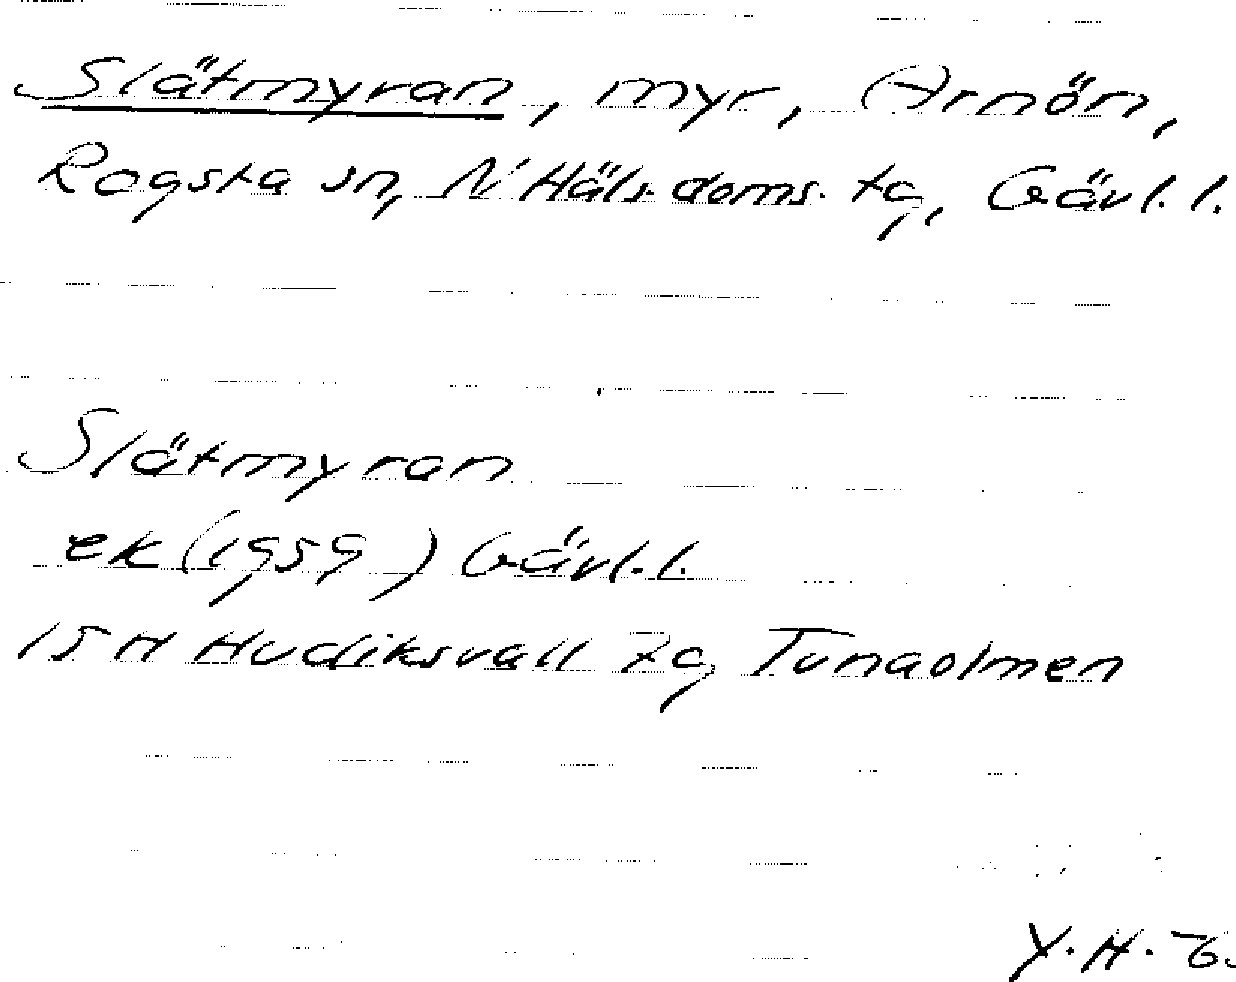 Slåtmyran, myr, Arnön,
Rogsta sn, N Häls. doms. tg, Gävl. l.
Slåtmyran
ek (1959) Gävl. l.
15 H Hudiksvall 7g Tunaolmen
Y. H. 6